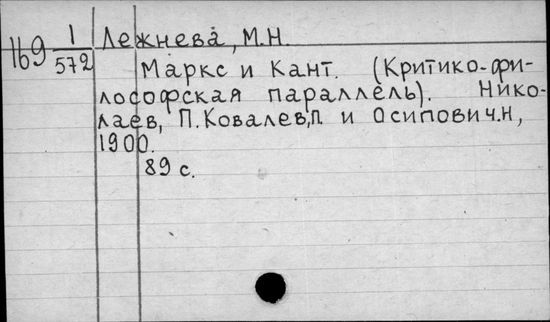 169 1/572 Лежнева, М.Н.
Маркс и Кант. (Критико-фи-
лософская параллель). Нико-
лаев, П.Ковалев,П. и Осипович.Н,
1900.
89 с.